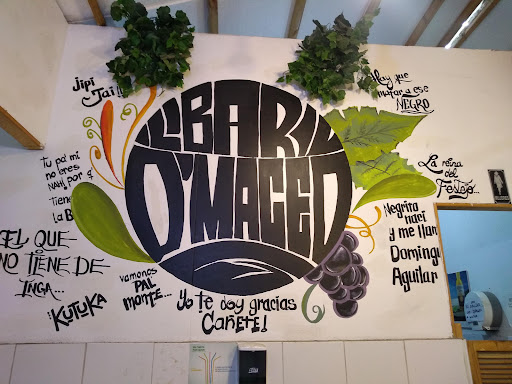 Jipi
Jai!!
Hay que
matar a ese
NEGRO
EL BAR
D'MACEO
La reina
del
Festejo...
Tu pa' mi
no eres
Tiene
la B
EL QUE
NO TIENE DE
INGA...
¡KUTUKA
vamonos
PAL
MONTE...
Yo te doy gracias
CAÑETE!
Negrito
nací
y me llam
Domingu
Aguilar